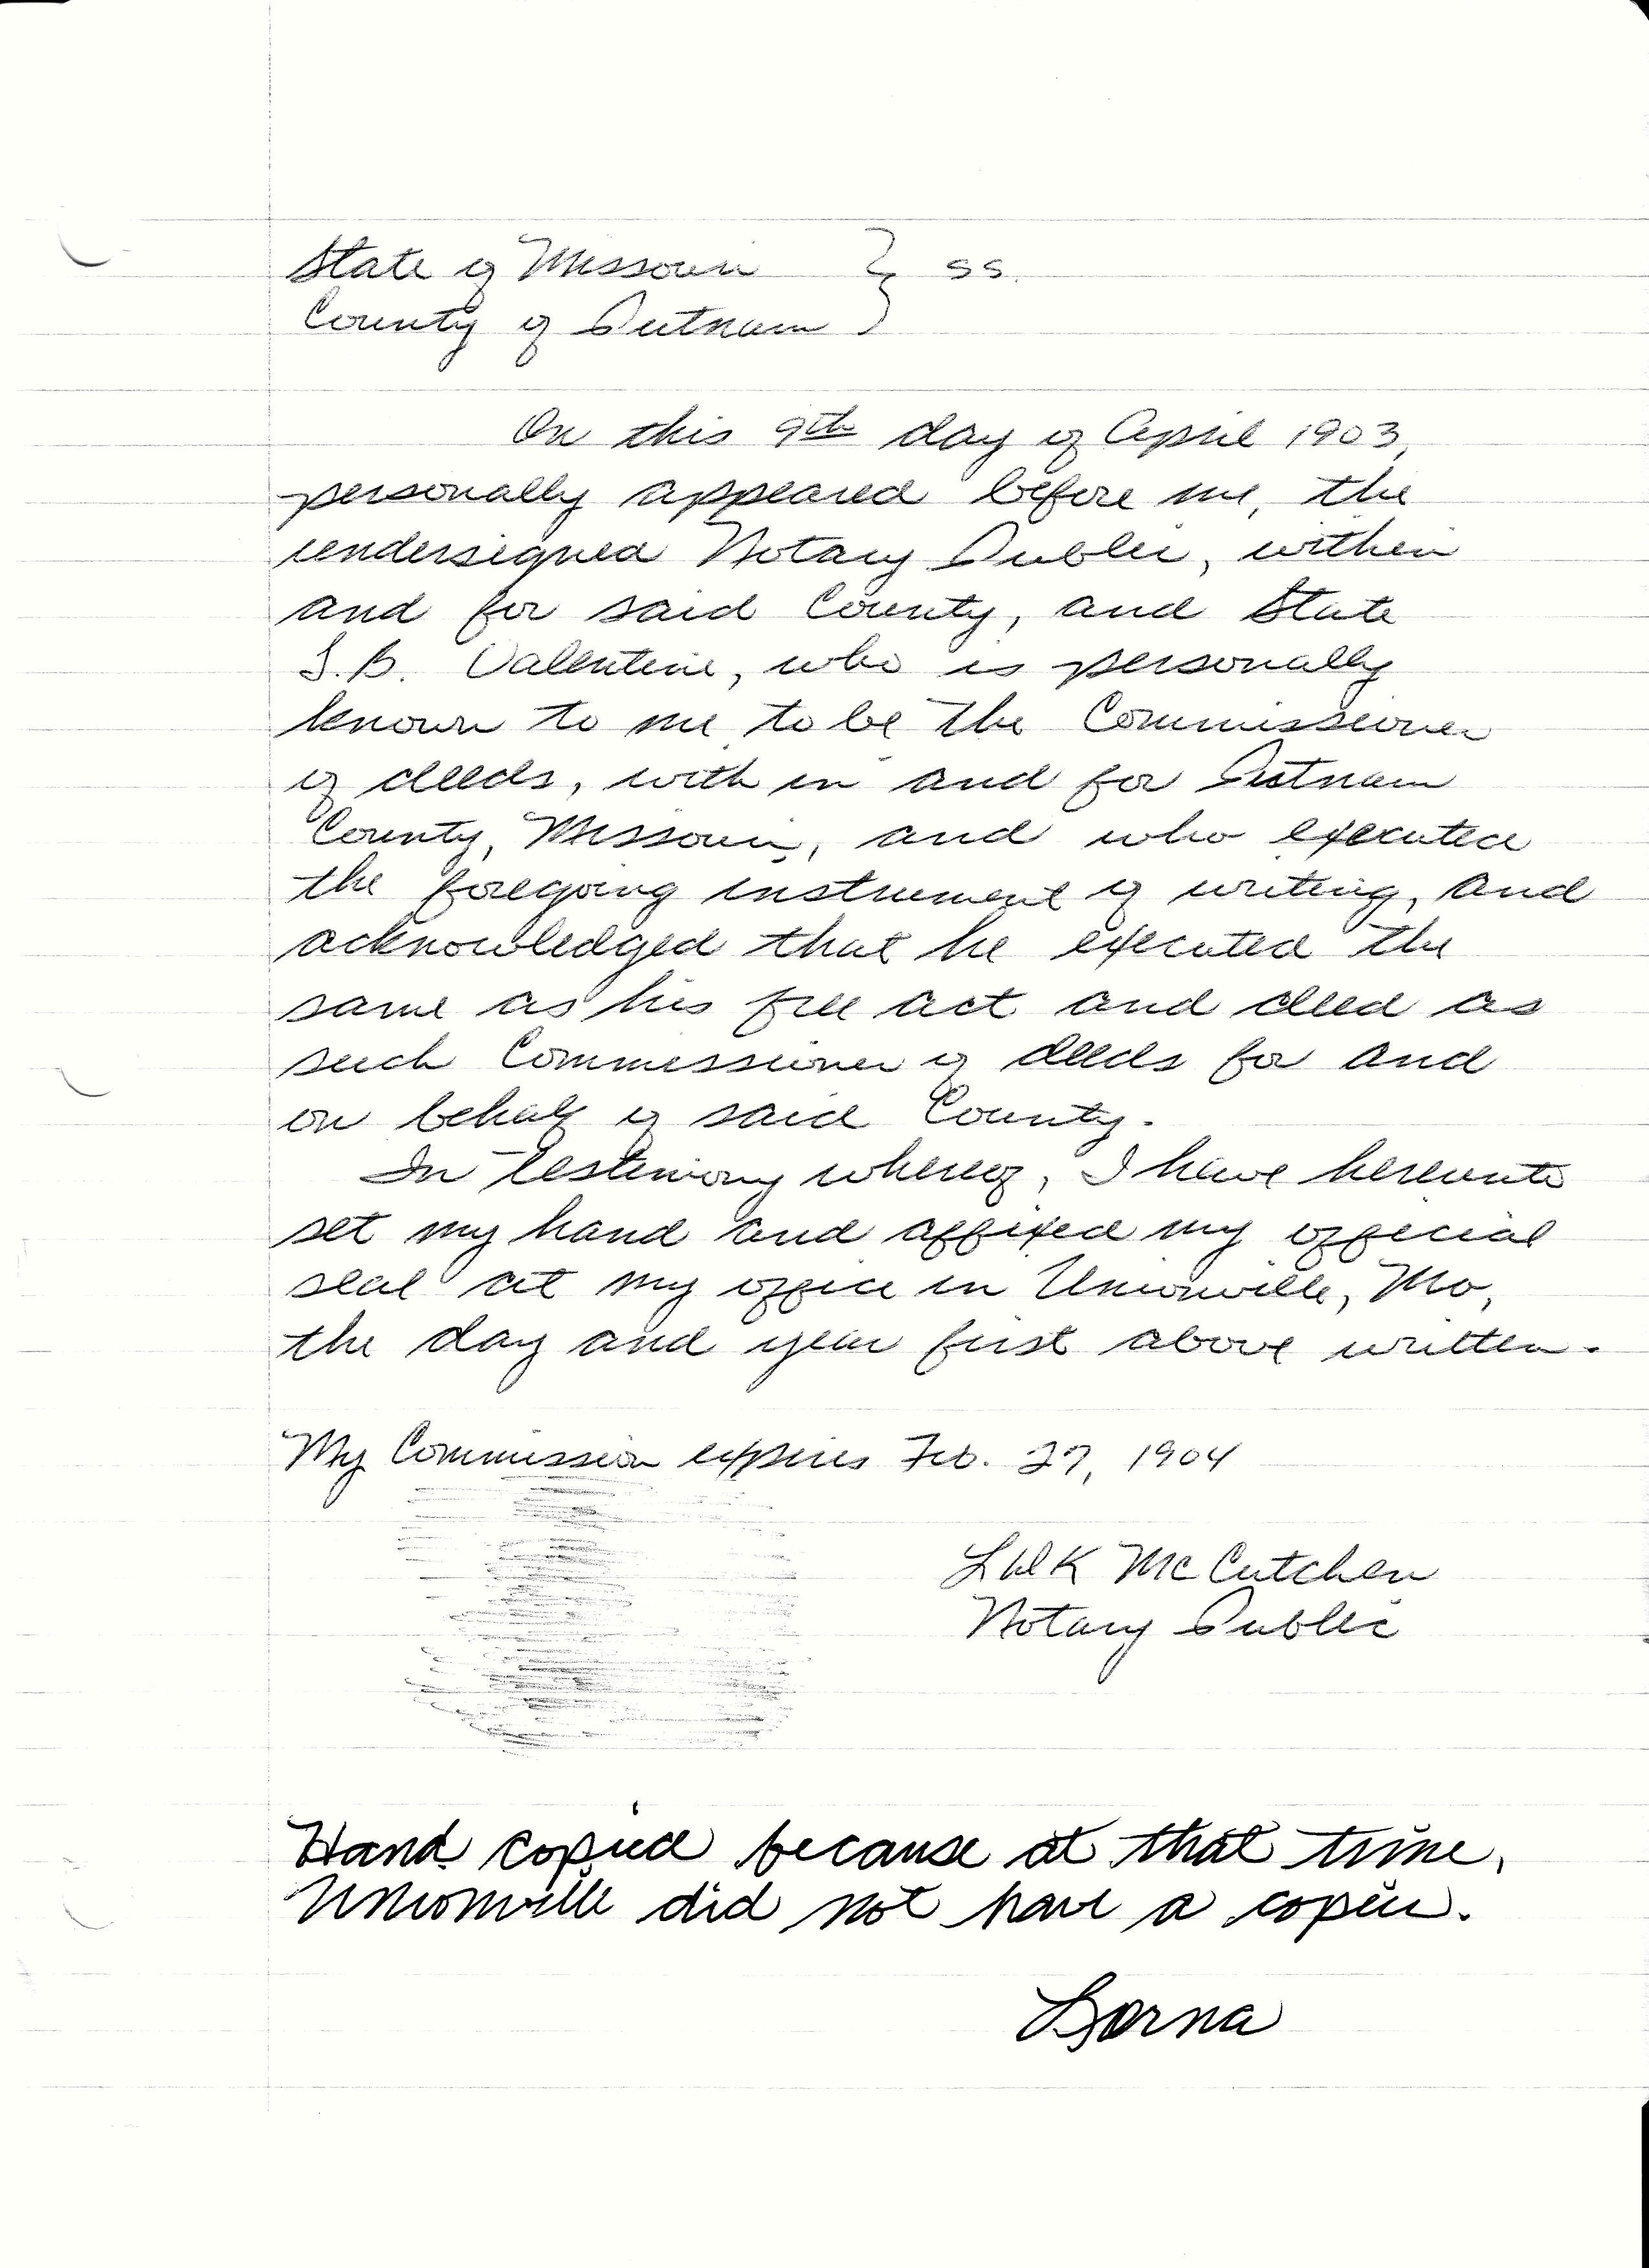 State of Missouri } ss.
County of Putnam
On this 9th day of April 1903,
personally appeared before me, the
undersigned Notary Public, within
and for said County, and State
S.B. Valentine, who is personally
known to me to be the Commissioner
of deeds, with in and for Putnam
County, Missouri, and who executed
the foregoing instrument of writing, and
acknowledged that he executed the
same as his free act and deed as
such Commissioner of deeds for and
on behalf of said County.
In testimony whereof, I have hereunto
set my hand and affixed my official
seal at my office in Unionville, Mo,
the day and year first above written.
My Commission expires Feb. 27, 1904
McCutchen
Notary Public
Hand copied because at that time,
Unionville did not have a copier.
Lorna